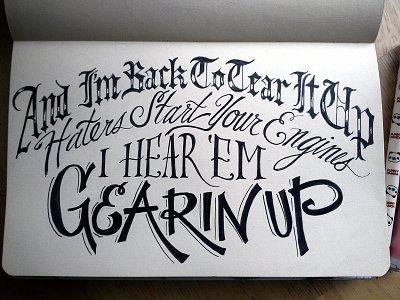 And I'm Back To Tear It Up
Haters Start Your Engines
I HEAR 'EM
GEARIN UP